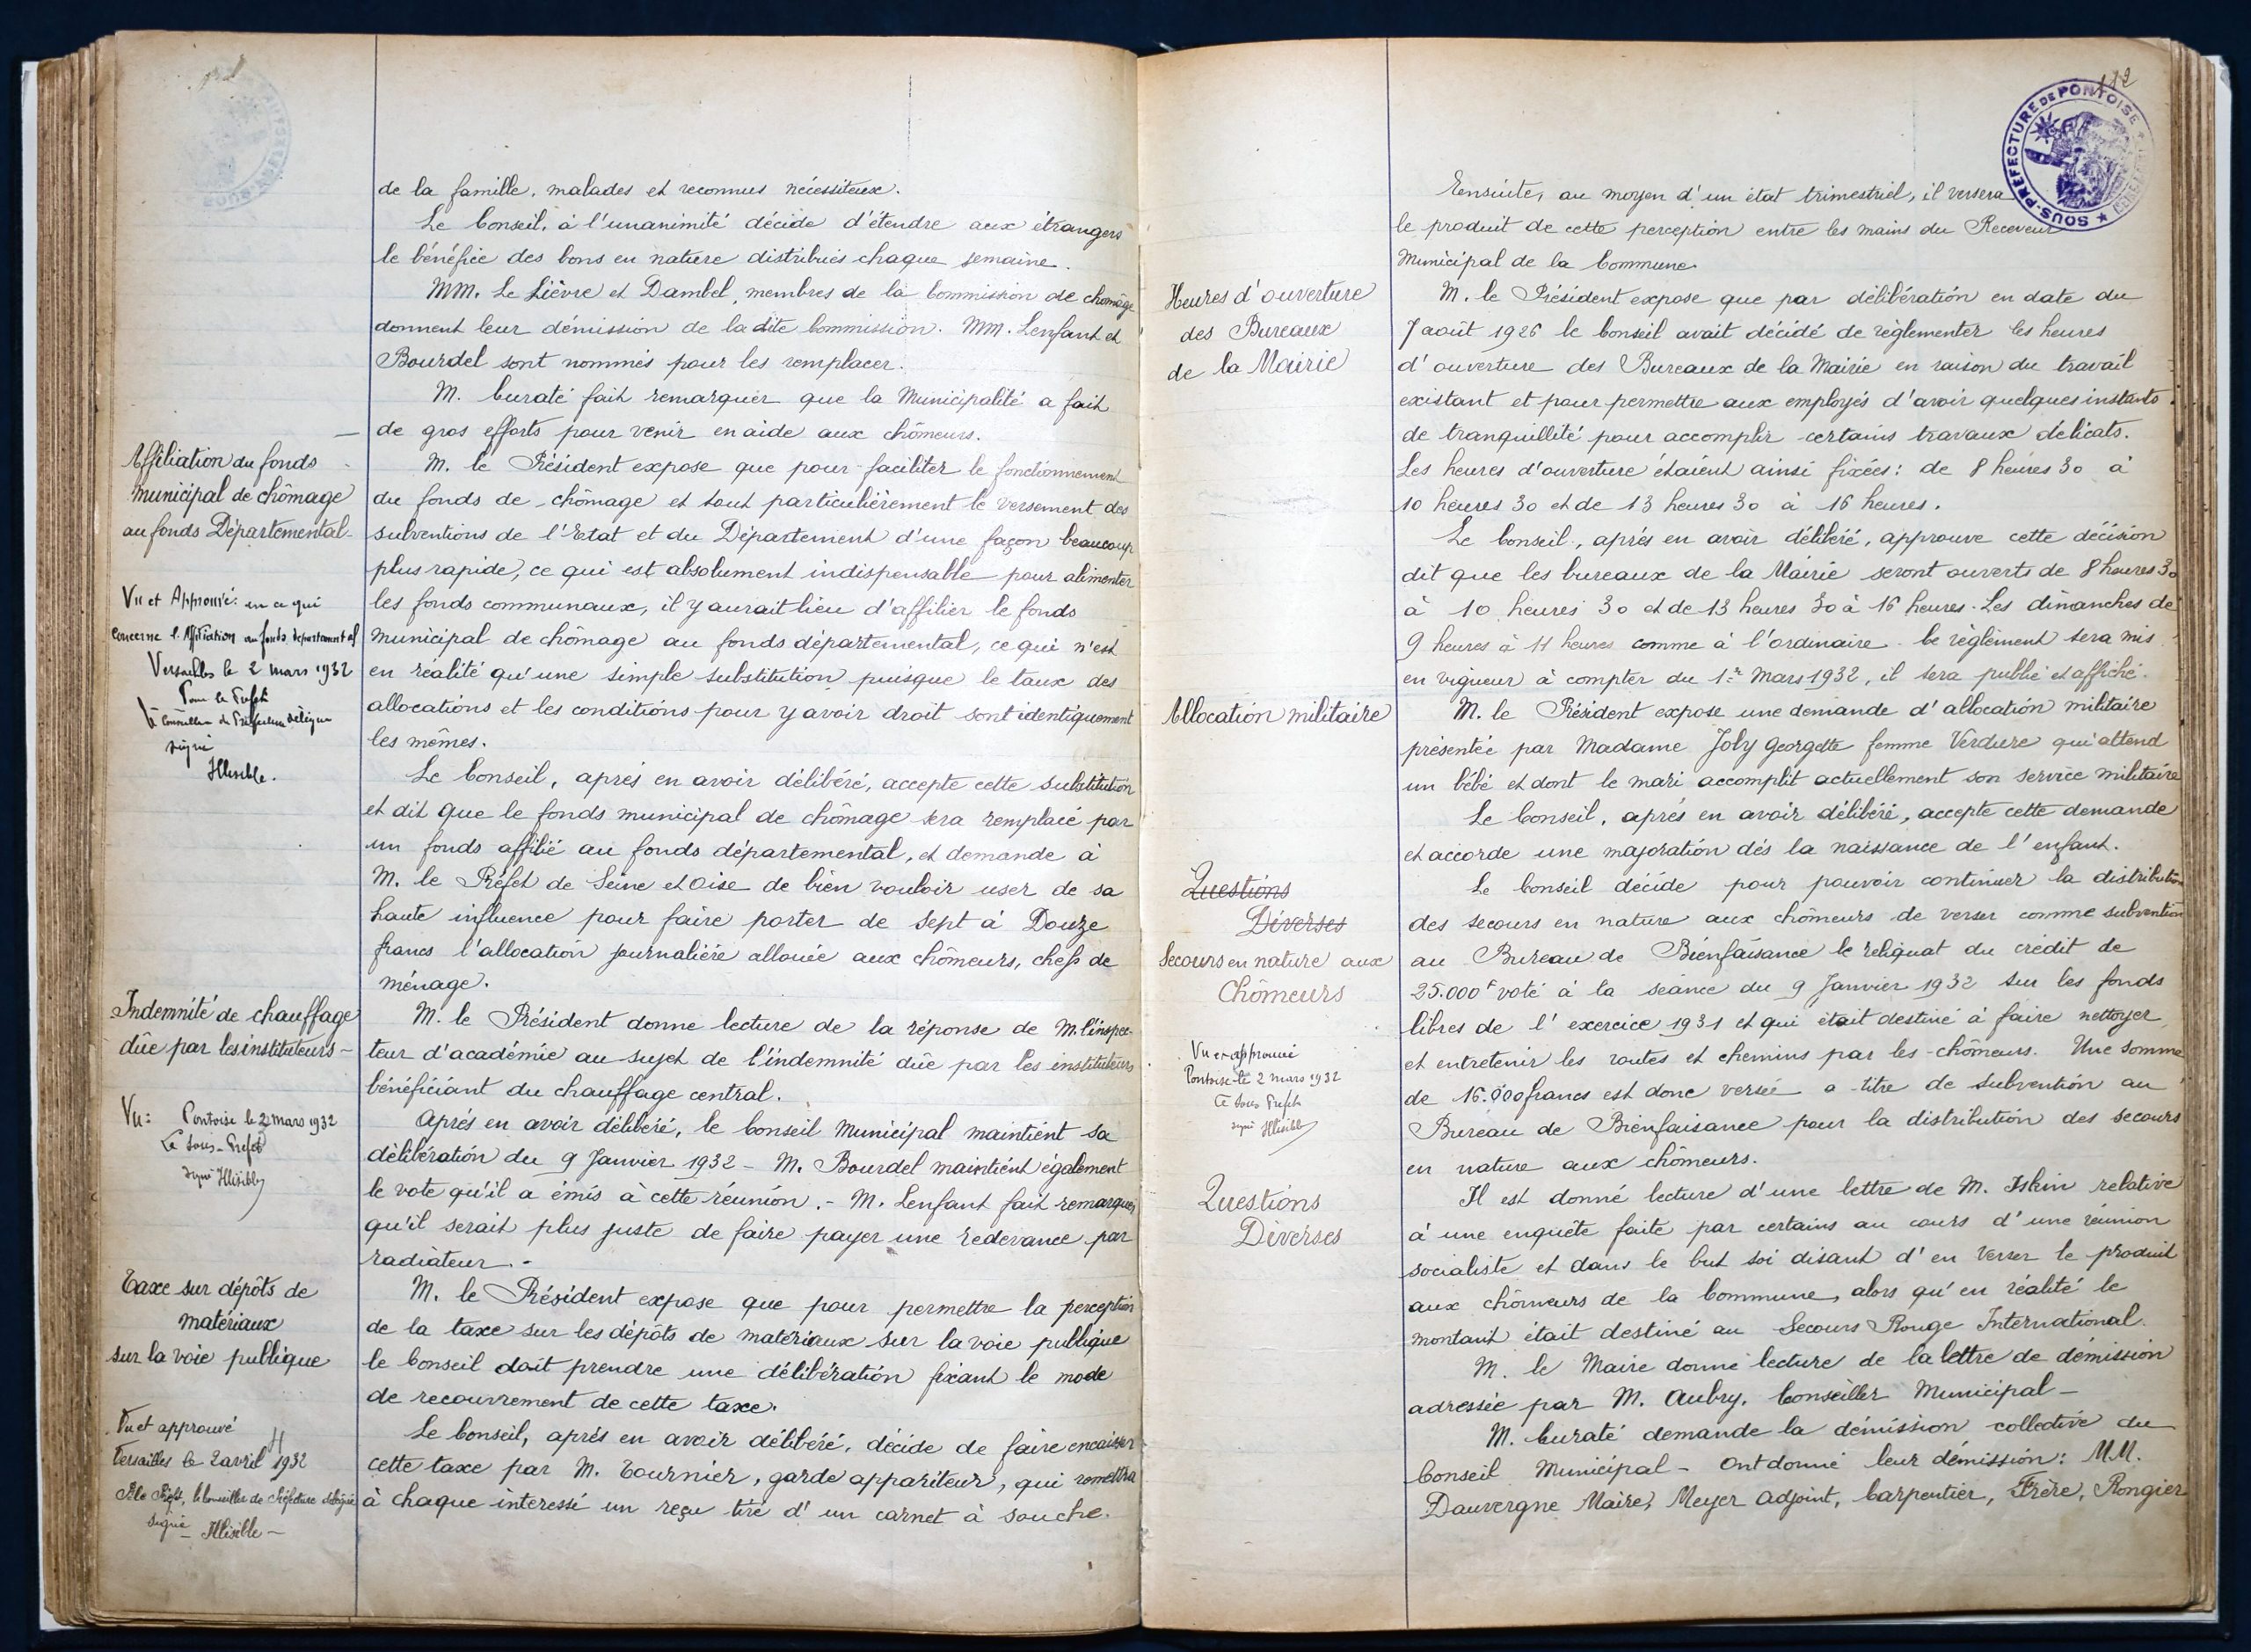 de la famille, malades et reconnus nécessiteux.
Le Conseil, à l'unanimité décide d'étendre aux étrangers
le bénéfice des bons en nature distribués chaque semaine.
MM. Le Lièvre et Dambel, membres de la Commission de chômage
donnent leur démission de la dite Commission. MM. Lenfant et
Bourdel sont nommés pour les remplacer.
M. Curaté fait remarquer que la Municipalité a fait
de gros efforts pour venir en aide aux chômeurs.
Affiliation du fonds
municipal de chômage
au fonds Départemental
M. le Président expose que pour faciliter le fonctionnement
du fonds de chômage et tout particulièrement le versement des
subventions de l'Etat et du Département d'une façon beaucoup
plus rapide, ce qui est absolument indispensable pour alimenter
les fonds communaux, il y aurait lieu d'affilier le fonds
municipal de chômage au fonds départemental, ce qui n'est
en réalité qu'une simple substitution puisque le taux des
allocations et les conditions pour y avoir droit sont identiquement
les mêmes.
Vu et Approuvé: en ce qui
concerne l'Affiliation au fonds départemental
Versailles le 2 mars 1932
Pour le Préfet
le Conseiller de Préfecture délégué
signé
Illisible.
Le Conseil, après en avoir délibéré, accepte cette substitution
et dit que le fonds municipal de chômage sera remplacé par
un fonds affilié au fonds départemental, et demande à
M. le Préfet de Seine et Oise de bien vouloir user de sa
haute influence pour faire porter de Sept à Douze
francs l'allocation journalière allouée aux chômeurs, chefs de
ménage.
Indemnité de chauffage
dûe par les instituteurs -
M. le Président donne lecture de la réponse de M. l'inspec-
teur d'académie au sujet de l'indemnité dûe par les instituteurs
bénéficiant du chauffage central.
Vu: Pontoise le 2 mars 1932
Le Sous-Préfet
signé Illisible
Après en avoir délibéré, le Conseil Municipal maintient sa
délibération du 9 Janvier 1932 - M. Bourdel maintient également
le vote qu'il a émis à cette réunion. - M. Lenfant fait remarquer
qu'il serait plus juste de faire payer une redevance par
radiateur. -
Taxe sur dépôts de
matériaux
sur la voie publique
M. le Président expose que pour permettre la perception
de la taxe sur les dépôts de matériaux sur la voie publique
le Conseil doit prendre une délibération fixant le mode
de recouvrement de cette taxe.
Vu et approuvé
Versailles le 2 avril 1932
P. le Préfet, le Conseiller de Préfecture délégué
signé Illisible -
Le Conseil, après en avoir délibéré, décide de faire encaisser
cette taxe par M. Tournier, garde appariteur, qui remettra
à chaque interessé un reçu tiré d'un carnet à souche.
112
SOUS-PRÉFECTURE DE PONTOISE
Ensuite, au moyen d'un état trimestriel, il versera
le produit de cette perception entre les mains du Receveur
Municipal de la Commune.
Heures d'ouverture
des Bureaux
de la Mairie
M. le Président expose que par délibération en date du
7 août 1926 le Conseil avait décidé de règlementer les heures
d'ouverture des Bureaux de la Mairie en raison du travail
existant et pour permettre aux employés d'avoir quelques instants
de tranquillité pour accomplir certains travaux délicats.
Les heures d'ouverture étaient ainsi fixées: de 8 heures 30 à
10 heures 30 et de 13 heures 30 à 16 heures.
Le Conseil, après en avoir délibéré, approuve cette décision
dit que les bureaux de la Mairie seront ouverts de 8 heures 30
à 10 heures 30 et de 13 heures 30 à 16 heures. Les dimanches de
9 heures à 11 heures comme à l'ordinaire. Ce règlement sera mis
en vigueur à compter du 1er Mars 1932, il sera publié et affiché.
Allocation militaire
M. le Président expose une demande d'allocation militaire
présentée par Madame Joly Georgette femme Verdure qui attend
un bébé et dont le mari accomplit actuellement son service militaire
Le Conseil, après en avoir délibéré, accepte cette demande
et accorde une majoration dès la naissance de l'enfant.
Questions
Diverses
Secours en nature aux
Chômeurs
Le Conseil décide pour pouvoir continuer la distribution
des secours en nature aux chômeurs de verser comme subvention
au Bureau de Bienfaisance le reliquat du crédit de
25.000f voté à la séance du 9 Janvier 1932 sur les fonds
libres de l'exercice 1931 et qui était destiné à faire nettoyer
et entretenir les routes et chemins par les chômeurs. Une somme
de 16.000 francs est donc versée a titre de subvention au
Bureau de Bienfaisance pour la distribution des secours
en nature aux chômeurs.
Vu et approuvé
Pontoise le 2 mars 1932
Le Sous Préfet
signé Illisible
Questions
Diverses
Il est donné lecture d'une lettre de M. Iskin relative
à une enquête faite par certains au cours d'une réunion
socialiste et dans le but soi disant d'en verser le produit
aux chômeurs de la Commune, alors qu'en réalité le
montant était destiné au Secours Rouge International.
M. le Maire donne lecture de la lettre de démission
adressée par M. Aubry, Conseiller Municipal -
M. Curaté demande la démission collective du
Conseil Municipal - Ont donné leur démission: MM.
Dauvergne Maire, Meyer Adjoint, Carpentier, Frère, Rongier